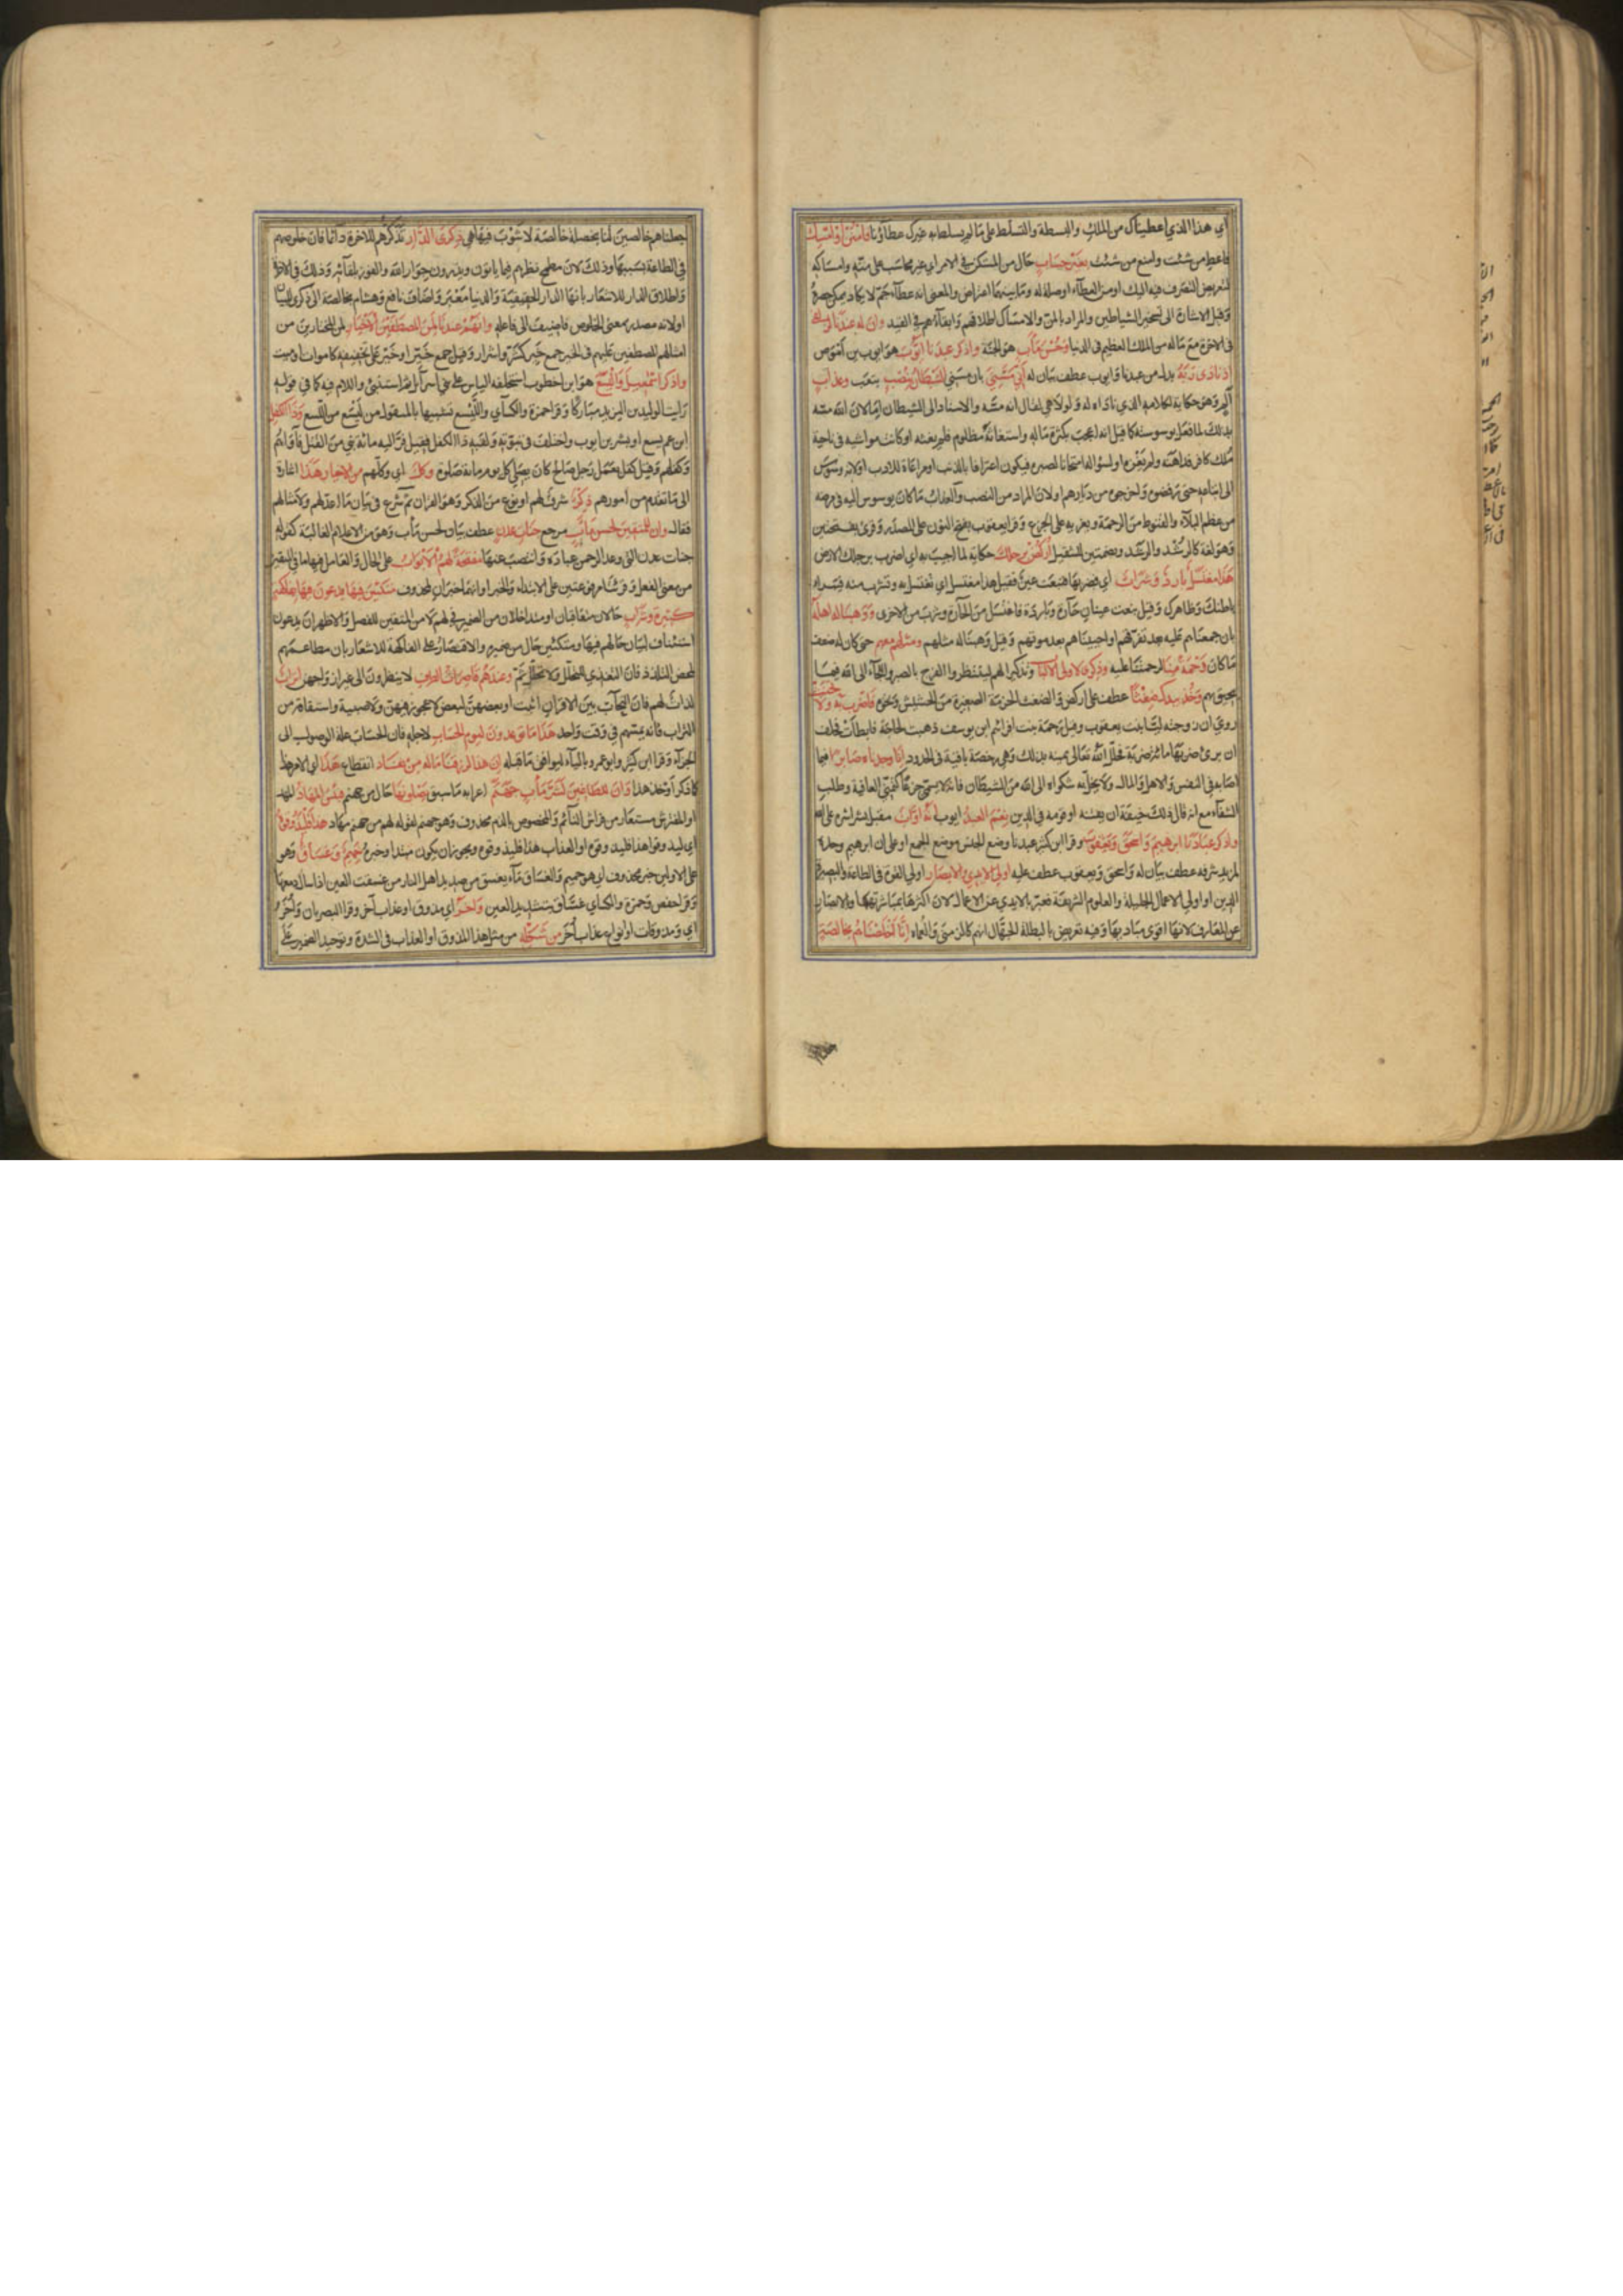 اي هذا الذي اعطيناك من الملك والبسطة والتسلط على ما لم يسلط به غيرك عطاؤنا فامنن او امسك
فاعط من شئت وامنع من شئت بغير حساب حال من المستكن في الامر اي غير محاسب على منته وامساكه
لتفويض التصرف فيه اليك او من العطاء او صلة له وما بينهما اعتراض والمعنى انه عطاء جم لا يكاد يمكن حصره
وقيل الاشارة الى تسخير الشياطين والمراد بالمن والامساك اطلاقهم وابقاءهم في القيد وان له عندنا لزلفى
في الاخرة مع ما له من الملك العظيم في الدنيا وحسن مآب هو الجنة واذكر عبدنا ايوب هو ايوب بن اموص
اذ نادى ربه بدل من عبدنا وايوب عطف بيان له أني مسني بان مسني الشيطان بنصب بتعب وعذاب
الم وهو حكاية لكلامه الذي ناداه له ولولا هي لقال انه مسه والاسناد الى الشيطان اما لان الله مسه
بذلك لما فعل بوسوسته كما قيل انه اعجب بكثرة ماله واستغاثه مظلوم فلم يغثه او كانت مواشيه في ناحية
ملك كافر فداهنه ولم يغزه او لسؤاله امتحانا لصبره فيكون اعترافا بالذنب او مراعاة للادب او لانه وسوس
الى اتباعه حتى رفضوه واخرجوه من ديارهم او لان المراد من النصب والعذاب ما كان يوسوس اليه في مرضه
من عظم البلاء والقنوط من الرحمة ويغريه على الجزع وقرا يعقوب بفتح النون على المصدر وقرئ بفتحتين
وهو لغة كالرشد والرشد وبضمتين للتثقيل اركض برجلك حكاية لما اجيب به اي اضرب برجلك الارض
هذا مغتسل بارد وشراب اي فضربها فنبعت عين فقيل هذا مغتسل اي تغتسل به وتشرب منه فيبرا
باطنك وظاهرك وقيل نبعت عينان حارة وباردة فاغتسل من الحارة وشرب من الاخرى ووهبنا له اهله
بان جمعناهم عليه بعد تفرقهم او احييناهم بعد موتهم وقيل وهبنا له مثلهم ومثلهم معهم حتى كان له ضعف
ما كان رحمة منا لرحمتنا عليه وذكرى لاولي الالباب وتذكيرا لهم لينتظروا الفرج بالصبر واللجاء الى الله فيما
يحيق بهم وخذ بيدك ضغثا عطف على اركض والضغث الحزمة الصغيرة من الحشيش ونحوه فاضرب به ولا تحنث
روي ان زوجته ليا بنت يعقوب وقيل رحمة بنت افرائيم ابن يوسف ذهبت لحاجة فابطات فحلف
ان برئ ضربها مائة ضربة فحلل الله تعالى يمينه بذلك وهي رخصة باقية في الحدود انا وجدناه صابرا فيما
اصابه في النفس والاهل والمال ولا يخل به شكواه الى الله من الشيطان فانه لا يسمى جزعا كتمني العافية وطلب
الشفاء مع انه قال ذلك خيفة ان يفتنه او قومه في الدين نعم العبد ايوب انه اواب مقبل بشراشره على الله
واذكر عبادنا ابرهيم واسحق ويعقوب وقرا ابن كثير عبدنا وضع الجنس موضع الجمع او على ان ابرهيم وحده
لمزيد شرفه عطف بيان له واسحق ويعقوب عطف عليه اولي الايدي والابصار اولي القوة في الطاعة والبصيرة في
الدين او اولي الاعمال الجليلة والعلوم الشريفة فعبر بالايدي عن الاعمال لان اكثرها بمباشرتها وبالابصار
عن المعارف لانها اقوى مباديها وفيه تعريض بالبطلة الجهال انهم كالزمنى والعماه إنا أخلصناهم بخالصة
جعلناهم خالصين لنا بخصلة خالصة لا شوب فيها هي ذكرى الدار تذكرهم للاخرة دائما فان خلوصهم
في الطاعة بسببها وذلك لان مطمح نظرهم فيما ياتون ويذرون جوار الله والفوز بلقائه وذلك في الاخرة
واطلاق الدار للاشعار بانها الدار الحقيقية والدنيا معبر واضاف نافع وهشام بخالصة الى ذكرى للبيان
او لانه مصدر بمعنى الخلوص فاضيف الى فاعله وانهم عندنا لمن المصطفين الاخيار لمن المختارين من
امثالهم المصطفين عليهم في الخير جمع خير كشر واشرار وقيل جمع خير او خير على تخفيفه كاموات وميت
واذكر اسمعيل واليسع هو ابن اخطوب استخلفه الياس على بني اسرائيل ثم استنبئ واللام فيه كما في قوله
رايت الوليد بن اليزيد مباركا وقرا حمزة والكسائي والليسع تشبيها بالمنقول من ليسع من اللسع وذا الكفل
ابن عم يسع او بشر بن ايوب واختلف في نبوته ولقبه ذا الكفل فقيل فر اليه مائة نبي من القتل فآواهم
وكفلهم وقيل كفل بعمل رجل صالح كان يصلي كل يوم مائة صلوة وكل اي وكلهم من الاخيار هذا اشارة
الى ما تقدم من امورهم ذكر شرف لهم او نوع من الذكر وهو القران ثم شرع في بيان ما اعد لهم ولامثالهم
فقال وان للمتقين لحسن مآب مرجع جنات عدن عطف بيان لحسن مآب وهو من الاعلام الغالبة كقوله
جنات عدن التي وعد الرحمن عباده وانتصب عنها مفتحة لهم الابواب على الحال والعامل فيها ما في المتقين
من معنى الفعل وقرئتا مرفوعتين على الابتداء والخبر او انهما خبران لمحذوف متكئين فيها يدعون فيها بفاكهة
كثيرة وشراب حالان متعاقبان او متداخلان من الضمير في لهم لا من المتقين للفصل والاظهر ان يدعون
استئناف لبيان حالهم فيها ومتكئين حال من ضميره والاقتصار على الفاكهة للاشعار بان مطاعمهم
لمحض التلذذ فان التغذي للتحلل ولا تحلل ثم وعندهم قاصرات الطرف لا ينظرون الى غير ازواجهن اتراب
لدات لهم فان التحاب بين الاقران اثبت او بعضهن لبعض لا عجوز فيهن ولا صبية واشتقاقه من
التراب فانه يمسهم في وقت واحد هذا ما توعدون ليوم الحساب لاجله فان الحساب علة الوصول الى
الجزاء وقرا ابن كثير وابو عمرو بالياء ليوافق ما قبله ان هذا لرزقنا ما له من نفاد انقطاع هذا اي الامر هذا
كما ذكر او خذ هذا وان للطاغين لشر مآب جهنم اعرابه ما سبق يصلونها حال من جهنم فبئس المهاد المهد
او المفترش مستعار من فراش النائم والمخصوص بالذم محذوف وهو جهنم لقوله لهم من جهنم مهاد هذا فليذوقوه
اي ليذوقوا هذا فليذوقوه او العذاب هذا فليذوقوه ويجوز ان يكون مبتدا وخبره حميم وغساق وهو
على الاولين خبر محذوف اي هو حميم والغساق ماء يغسق من صديد اهل النار من غسقت العين اذا سال دمعها
وقرا حفص وحمزة والكسائي غساق بتشديد السين واخر اي مذوق او عذاب آخر وقرا البصريان وأخر
اي ومذوقات او انواع عذاب أخر من شكله من مثل هذا المذوق او العذاب في الشدة وتوحيد الضمير على